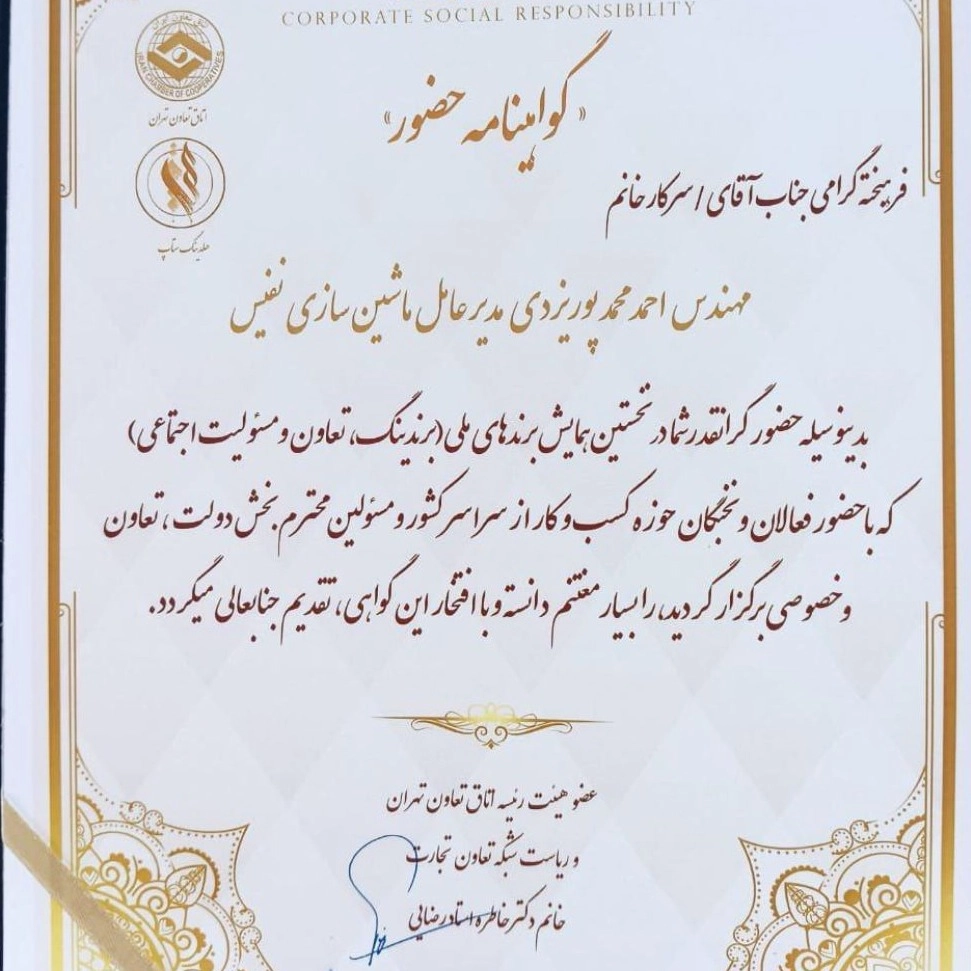 CORPORATE SOCIAL RESPONSIBILITY
IRAN CHAMBER OF COOPERATIVES
اتاق تعاون تهران
هلدینگ ستاپ
« گواهینامه حضور »
فرهیخته گرامی جناب آقای / سرکار خانم
مهندس احمد محمد پور یزدی مدیر عامل ماشین سازی نفیس
بدینوسیله حضور گرانقدر شما در نخستین همایش برندهای ملی (برندینگ، تعاون و مسئولیت اجتماعی)
که با حضور فعالان و نخبگان حوزه کسب و کار از سراسر کشور و مسئولین محترم بخش دولت، تعاون
و خصوصی برگزار گردید، را بسیار مغتنم دانسته و با افتخار این گواهی، تقدیم جنابعالی میگردد.
عضو هیئت رئیسه اتاق تعاون تهران
و ریاست شبکه تعاون تجارت
خانم دکتر خاطره استاد رضایی